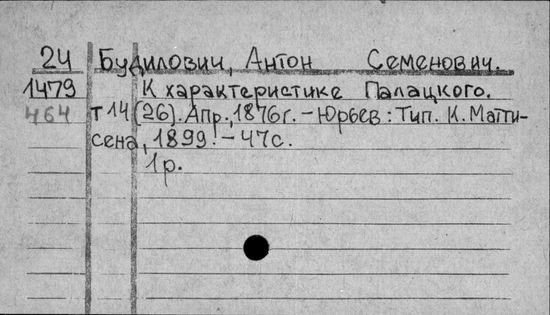 24 Будилович, Антон Семенович.
1479 К характеристике Палацкого.
464 т 14 (26). Апр., 1876г. – Юрьев: Тип. К. Матти-
сена, 1899. – 47с.
1р.